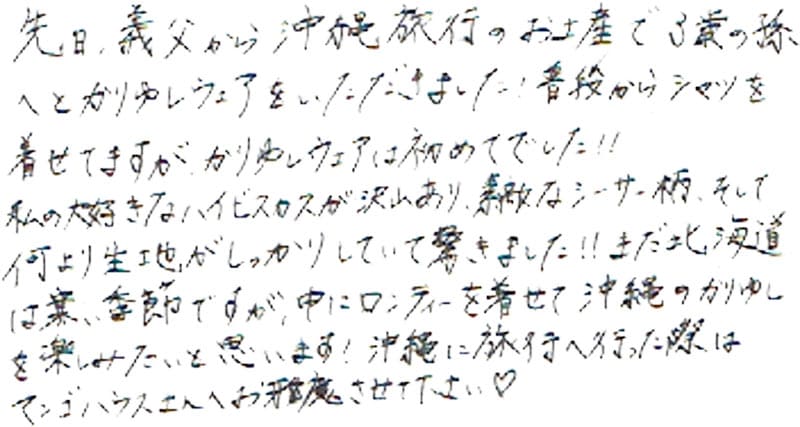 先日、義父から沖縄旅行のお土産で3歳の孫、
へとかりゆしウェアをいただきました!普段からシャツを
着せてますが、かりゆしウェアは初めてでした!!
私の大好きなハイビスカスが沢山あり、素敵なシーサー柄、そして
何より生地がしっかりしていて驚きました!!まだ北海道
は寒い季節ですが、中にロンティーを着せて沖縄のかりゆし
を楽しみたいと思います!沖縄に旅行へ行った際は
マンゴハウスさんへお邪魔させて下さい♡